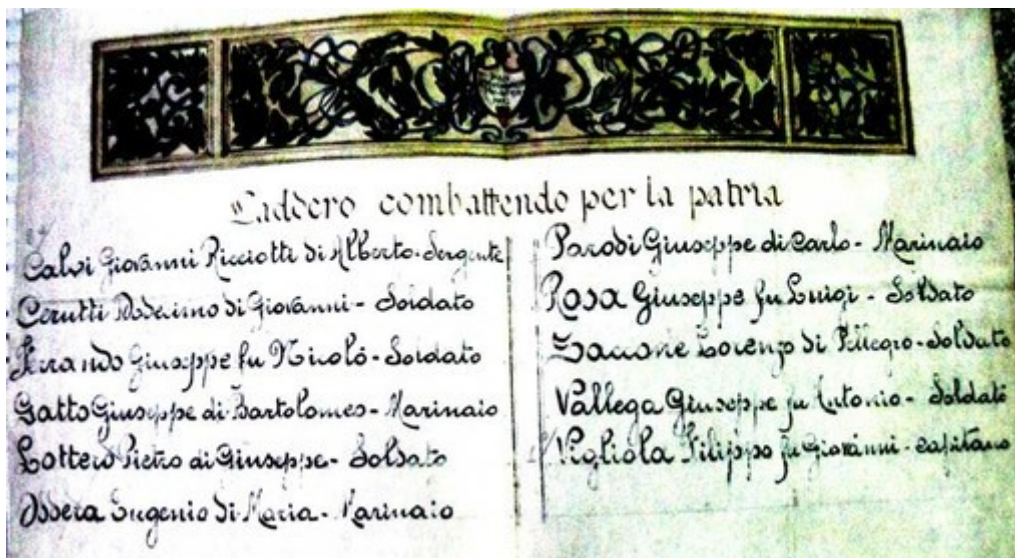 Caddero combattendo per la patria
Calvi Giovanni Ricciotti di Alberto - Sergente
Cerutti di Giovanni - Soldato
Ferrando Giuseppe fu Nicolò - Soldato
Gatto Giuseppe di Bartolomeo - Marinaio
Lottero Pietro di Giuseppe - Soldato
Eugenio di Maria - Marinaio
Parodi Giuseppe di Carlo - Marinaio
Rosa Giuseppe fu Luigi - Soldato
Zaccone Lorenzo di - Soldato
Vallega Giuseppe fu Antonio - Soldato
Vigliola Filippo fu Giovanni - capitano